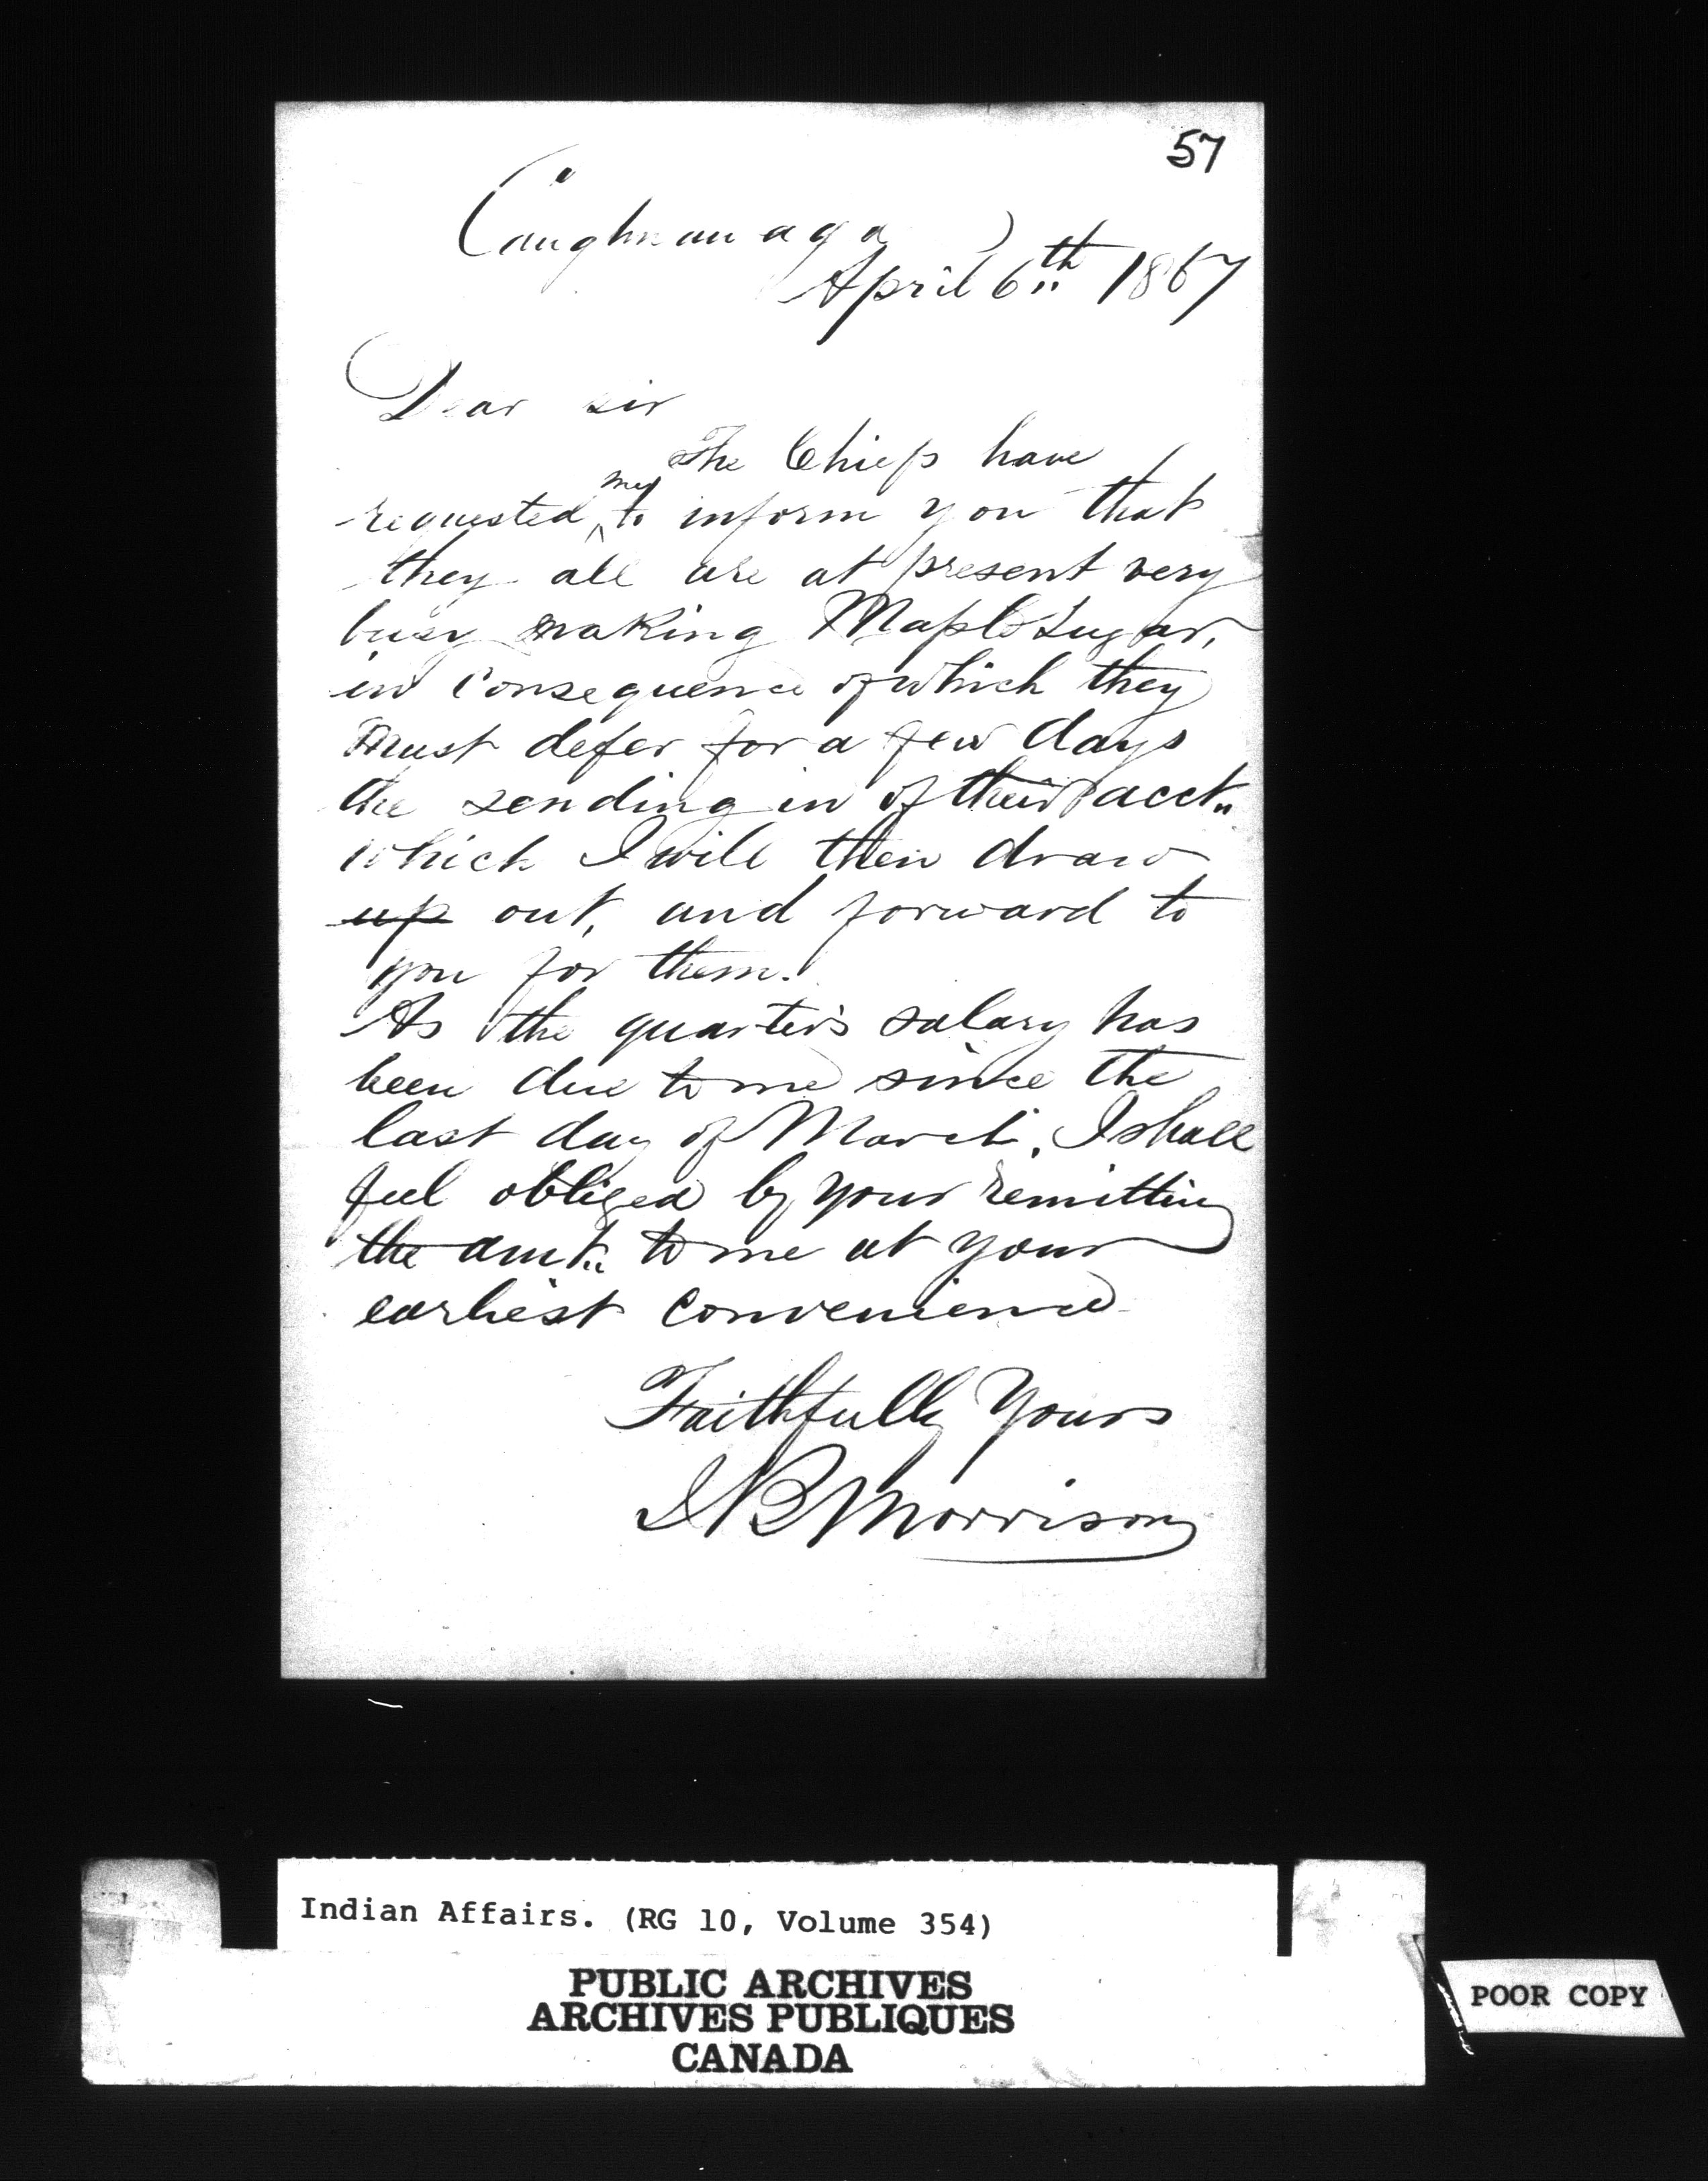 57
Caughnawaga
April 6th 1867
Dear sir
The Chiefs have
me
requested to inform you that
they all are at present very
busy making Maple Sugar,
in Consequence of which they
must defer for a few days
the sending in of their acct.
which I will then draw
up out, and forward to
you for them.
As the quarter's salary has
been due to me since the
last day of March, I shall
feel obliged by your remitting
the amt. to me at your
earliest convenience
Faithfully Yours
J B Morrison
Indian Affairs. (RG 10, Volume 354)
PUBLIC ARCHIVES
ARCHIVES PUBLIQUES
CANADA
POOR COPY